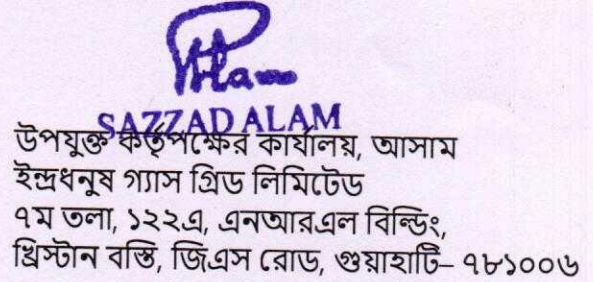 SAZZAD ALAM
উপযুক্ত কর্তৃপক্ষের কার্যালয়, আসাম
ইন্দ্রধনুষ গ্যাস গ্রিড লিমিটেড
৭ম তলা, ১২২এ, এনআরএল বিল্ডিং,
খ্রিস্টান বস্তি, জিএস রোড, গুয়াহাটি– ৭৮১০০৬